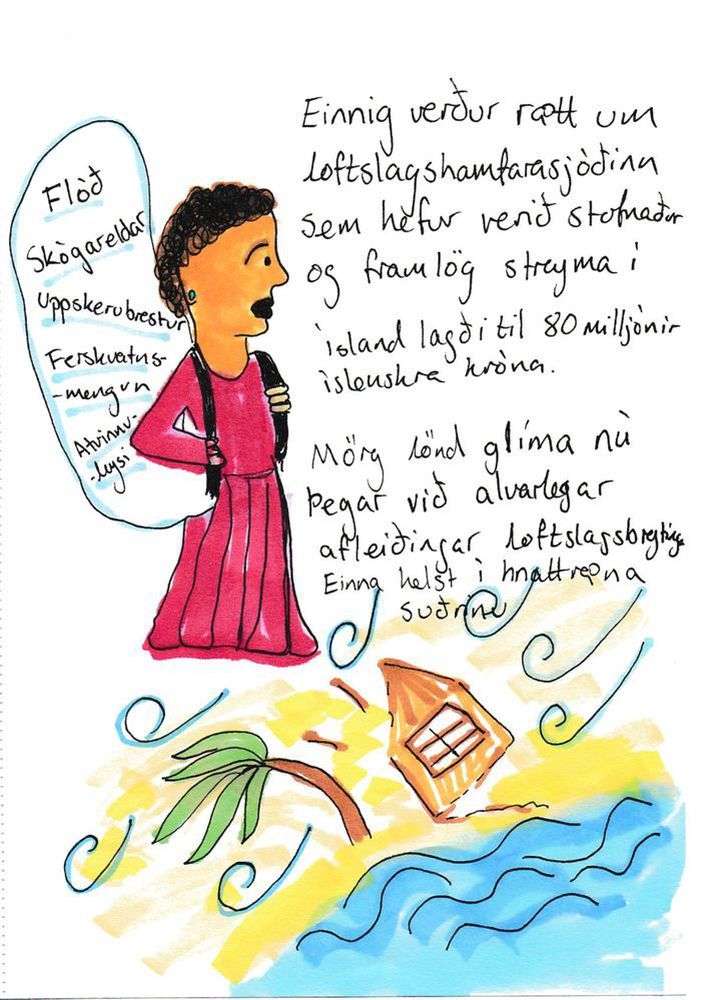 Flóð
Skógareldar
Uppskerubrestur
Ferskvatns-
-mengun
Atvinnu-
-leysi
Einnig verður rætt um
loftslagshamfarasjóðinn
sem hefur verið stofnaður
og framlög streyma í
ísland lagði til 80 milljónir
íslenskra króna.
Mörg lönd glíma nú
þegar við alvarlegar
afleiðingar loftslagsbreytinga
Einna helst í hnattræna
suðrinu